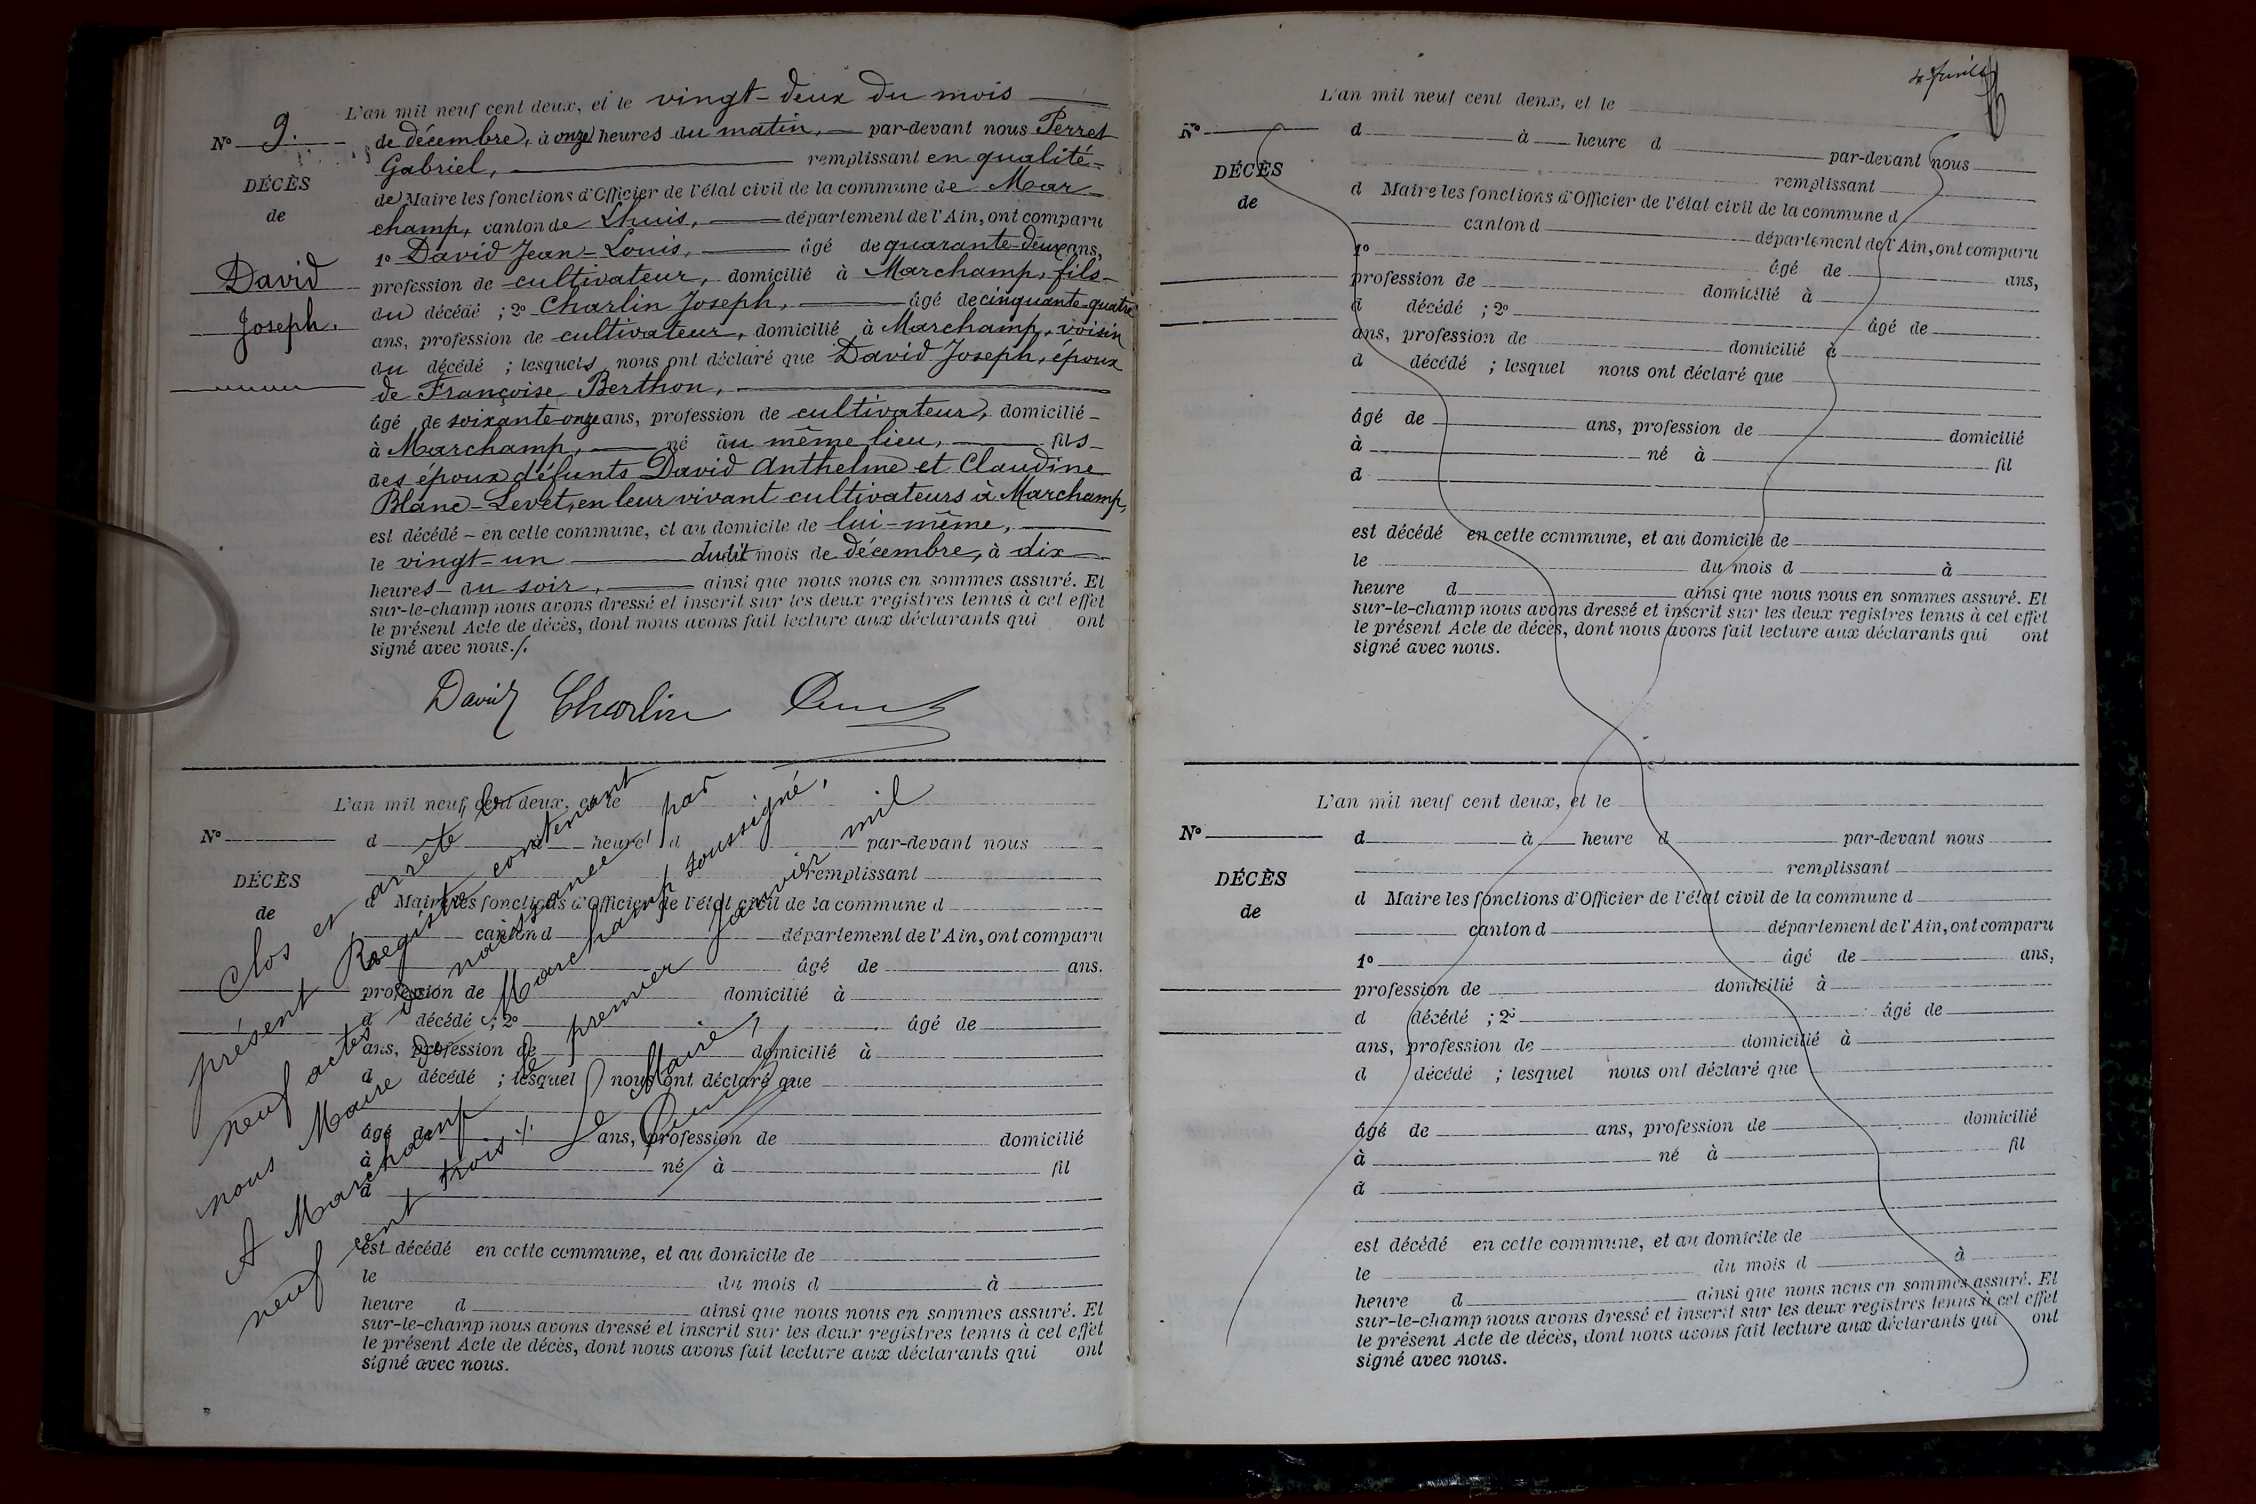 L'an mil neuf cent deux, et le vingt-deux du mois
N° 9.
de décembre, à onze heures du matin, par-devant nous Perret
Gabriel, remplissant en qualité
DÉCÈS
de Maire les fonctions d'Officier de l'état civil de la commune de Mar
de
champ, canton de Lhuis, département de l'Ain, ont comparu
1° David Jean-Louis, âgé de quarante-deux ans,
David
profession de cultivateur, domicilié à Marchamp, fils
du décédé ; 2° Charlin Joseph, âgé de cinquante-quatre
Joseph.
ans, profession de cultivateur, domicilié à Marchamp, voisin
du décédé ; lesquels nous ont déclaré que David Joseph, époux
de Françoise Berthon,
âgé de soixante-onze ans, profession de cultivateur, domicilié
à Marchamp, né au même lieu, fils
des époux défunts David Anthelme et Claudine
Blanc-Levet, en leur vivant cultivateurs à Marchamp,
est décédé en cette commune, et au domicile de lui-même,
le vingt-un dudit mois de décembre, à dix
heures du soir, ainsi que nous nous en sommes assuré. Et
sur-le-champ nous avons dressé et inscrit sur les deux registres tenus à cet effet
le présent Acte de décès, dont nous avons fait lecture aux déclarants qui ont
signé avec nous./.
David Charlin Perret
L'an mil neuf cent deux, et le
N°
d à heure d par-devant nous
remplissant
DÉCÈS
d Maire les fonctions d'Officier de l'état civil de la commune d
de
canton d département de l'Ain, ont comparu
1° âgé de ans.
profession de domicilié à
d décédé ; 2° âgé de
ans, profession de domicilié à
d décédé ; lesquel nous ont déclaré que
âgé de ans, profession de domicilié
à né à fil
d
est décédé en cette commune, et au domicile de
le du mois d à
heure d ainsi que nous nous en sommes assuré. Et
sur-le-champ nous avons dressé et inscrit sur les deux registres tenus à cet effet
le présent Acte de décès, dont nous avons fait lecture aux déclarants qui ont
signé avec nous.
Clos et arrêté le
présent Registre contenant
neuf actes de naissance par
nous Maire de Marchamp soussigné,
A Marchamp le premier Janvier mil
neuf cent trois ./.
Le Maire,
Perret
L'an mil neuf cent deux, et le
N°
d à heure d par-devant nous
remplissant
DÉCÈS
d Maire les fonctions d'Officier de l'état civil de la commune d
de
canton d département de l'Ain, ont comparu
1° âgé de ans,
profession de domicilié à
d décédé ; 2° âgé de
ans, profession de domicilié à
d décédé ; lesquel nous ont déclaré que
âgé de ans, profession de domicilié
à né à fil
d
est décédé en cette commune, et au domicile de
le du mois d à
heure d ainsi que nous nous en sommes assuré. Et
sur-le-champ nous avons dressé et inscrit sur les deux registres tenus à cet effet
le présent Acte de décès, dont nous avons fait lecture aux déclarants qui ont
signé avec nous.
L'an mil neuf cent deux, et le
N°
d à heure d par-devant nous
remplissant
DÉCÈS
d Maire les fonctions d'Officier de l'état civil de la commune d
de
canton d département de l'Ain, ont comparu
1° âgé de ans,
profession de domicilié à
d décédé ; 2° âgé de
ans, profession de domicilié à
d décédé ; lesquel nous ont déclaré que
âgé de ans, profession de domicilié
à né à fil
d
est décédé en cette commune, et au domicile de
le du mois d à
heure d ainsi que nous nous en sommes assuré. Et
sur-le-champ nous avons dressé et inscrit sur les deux registres tenus à cet effet
le présent Acte de décès, dont nous avons fait lecture aux déclarants qui ont
signé avec nous.